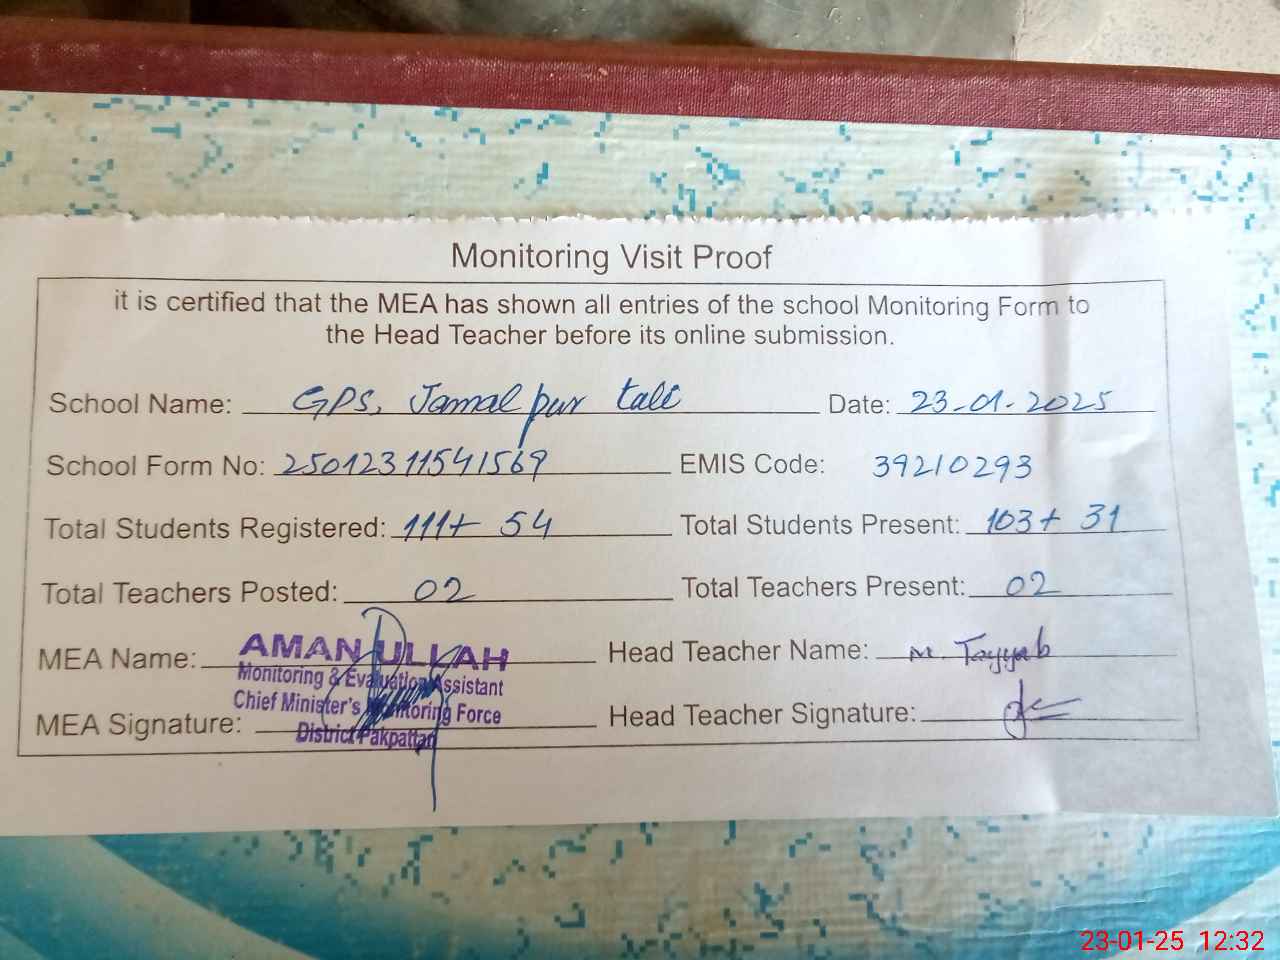 Monitoring Visit Proof
it is certified that the MEA has shown all entries of the school Monitoring Form to
the Head Teacher before its online submission.
School Name: GPS, Jamal pur tali Date: 23-01-2025
School Form No: 25012311541569 EMIS Code: 39210293
Total Students Registered: 111+ 54 Total Students Present: 103+ 31
Total Teachers Posted: 02 Total Teachers Present: 02
MEA Name: AMAN ULLAH Head Teacher Name: M. Tayyab
Monitoring & Evaluation Assistant
Chief Minister's Monitoring Force
MEA Signature: District Pakpattan Head Teacher Signature:
23-01-25 12:32